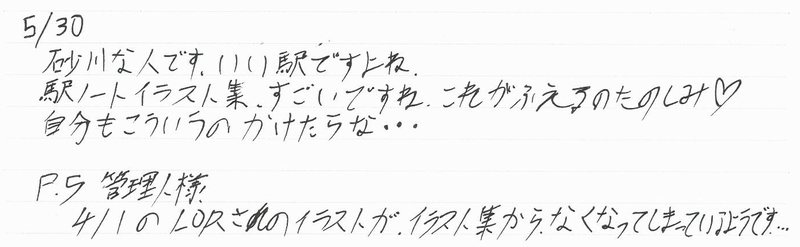 5/30
砂川な人です。いい駅ですよね。
駅ノートイラスト集、すごいですね。これがふえるのたのしみ♡
自分もこういうの かけたらな・・・
P.S 管理人様
4/1の さんのイラストが、イラスト集から、なくなってしまっているようです…